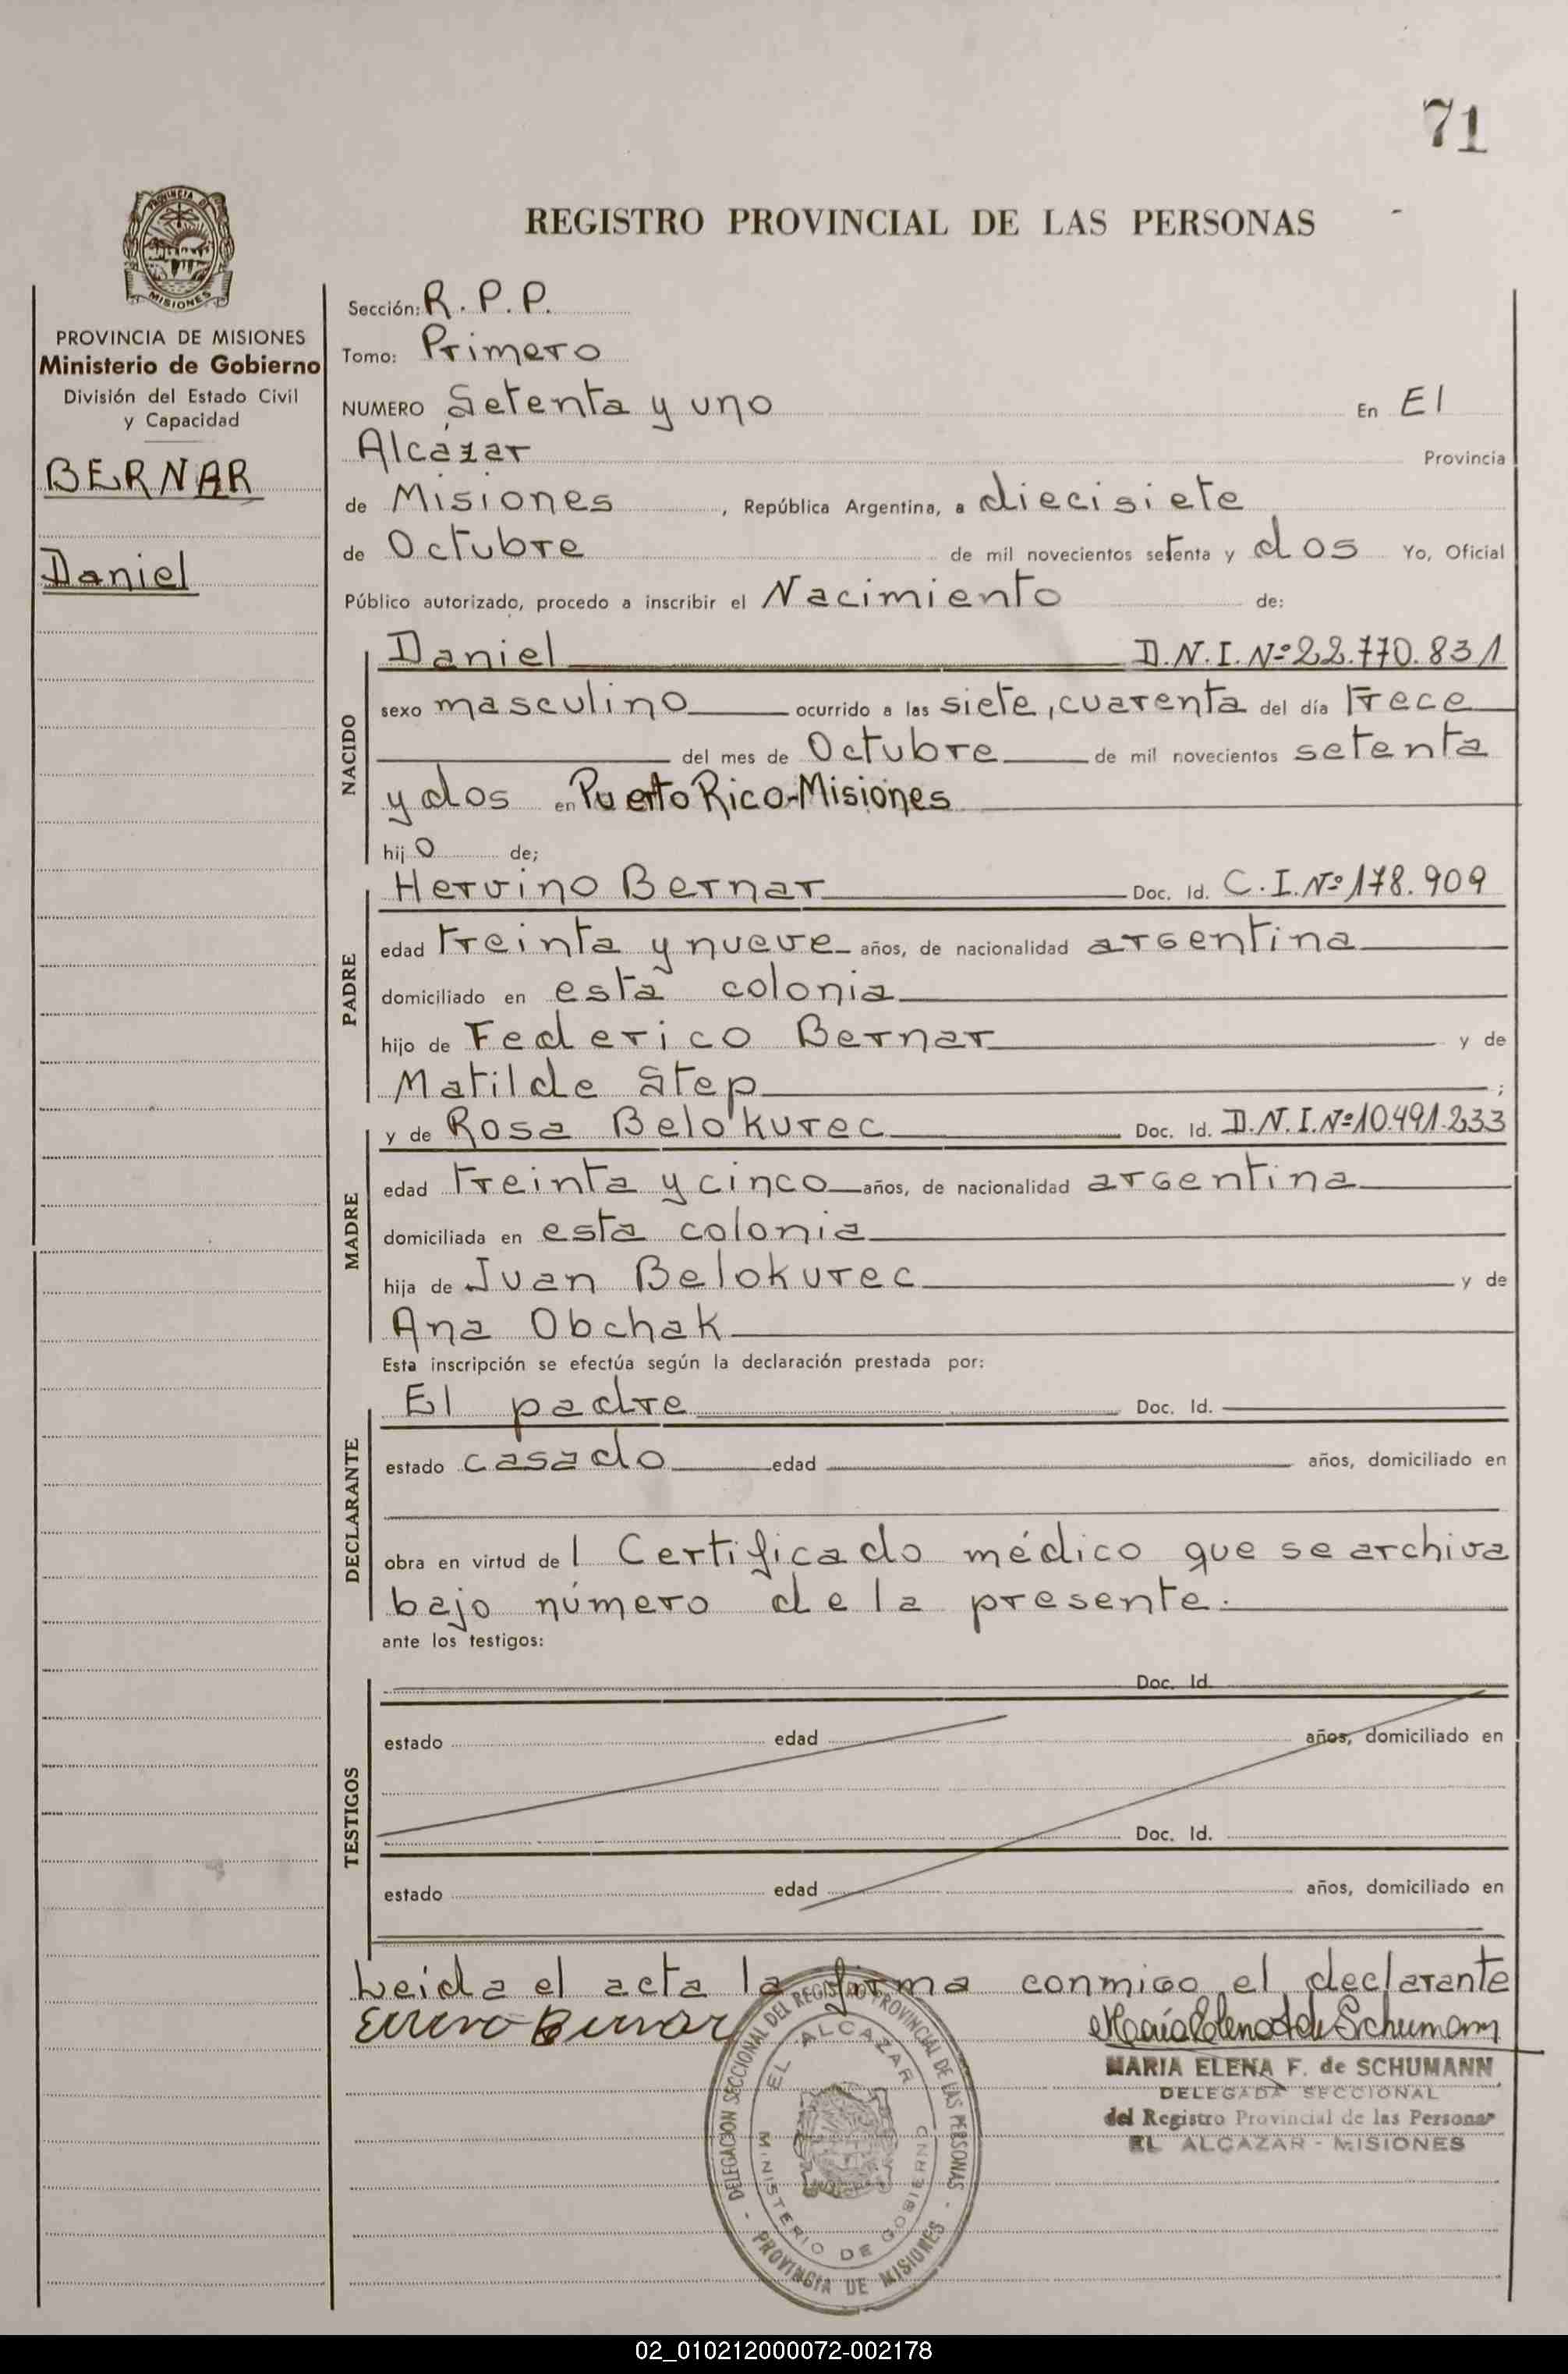 71
REGISTRO PROVINCIAL DE LAS PERSONAS
PROVINCIA DE MISIONES
Ministerio de Gobierno
División del Estado Civil
y Capacidad
BERNAR
Daniel
Sección: R. P. P.
Tomo: Primero
NUMERO Setenta y uno En El
Alcázar Provincia
de Misiones, República Argentina, a diecisiete
de Octubre de mil novecientos setenta y dos Yo, Oficial
Público autorizado, procedo a inscribir el Nacimiento de:
NACIDO
Daniel D.N.I. Nº 22.770.831
sexo masculino ocurrido a las siete, cuarenta del día trece
del mes de Octubre de mil novecientos setenta
y dos en Puerto Rico-Misiones
hijo de;
PADRE
Hervino Bernar Doc. Id. C.I. Nº 178.909
edad treinta y nueve años, de nacionalidad argentina
domiciliado en esta colonia
hijo de Federico Bernar y de
Matilde Step ;
MADRE
y de Rosa Belokurec Doc. Id. D.N.I. Nº 10.491.233
edad treinta y cinco años, de nacionalidad argentina
domiciliada en esta colonia
hija de Juan Belokurec y de
Ana Obchak
Esta inscripción se efectúa según la declaración prestada por:
DECLARANTE
El padre Doc. Id.
estado casado edad años, domiciliado en
obra en virtud del Certificado médico que se archiva
bajo número de la presente.
ante los testigos:
TESTIGOS
Doc. Id.
estado edad años, domiciliado en
Doc. Id.
estado edad años, domiciliado en
Leida el acta la firma conmigo el declarante
Bernar
MARIA ELENA F. de SCHUMANN
DELEGADA SECCIONAL
del Registro Provincial de las Personas
EL ALCAZAR - MISIONES
DELEGACION SECCIONAL DEL REGISTRO PROVINCIAL DE LAS PERSONAS - PROVINCIA DE MISIONES -
EL ALCAZAR
MINISTERIO DE GOBIERNO
02_010212000072-002178